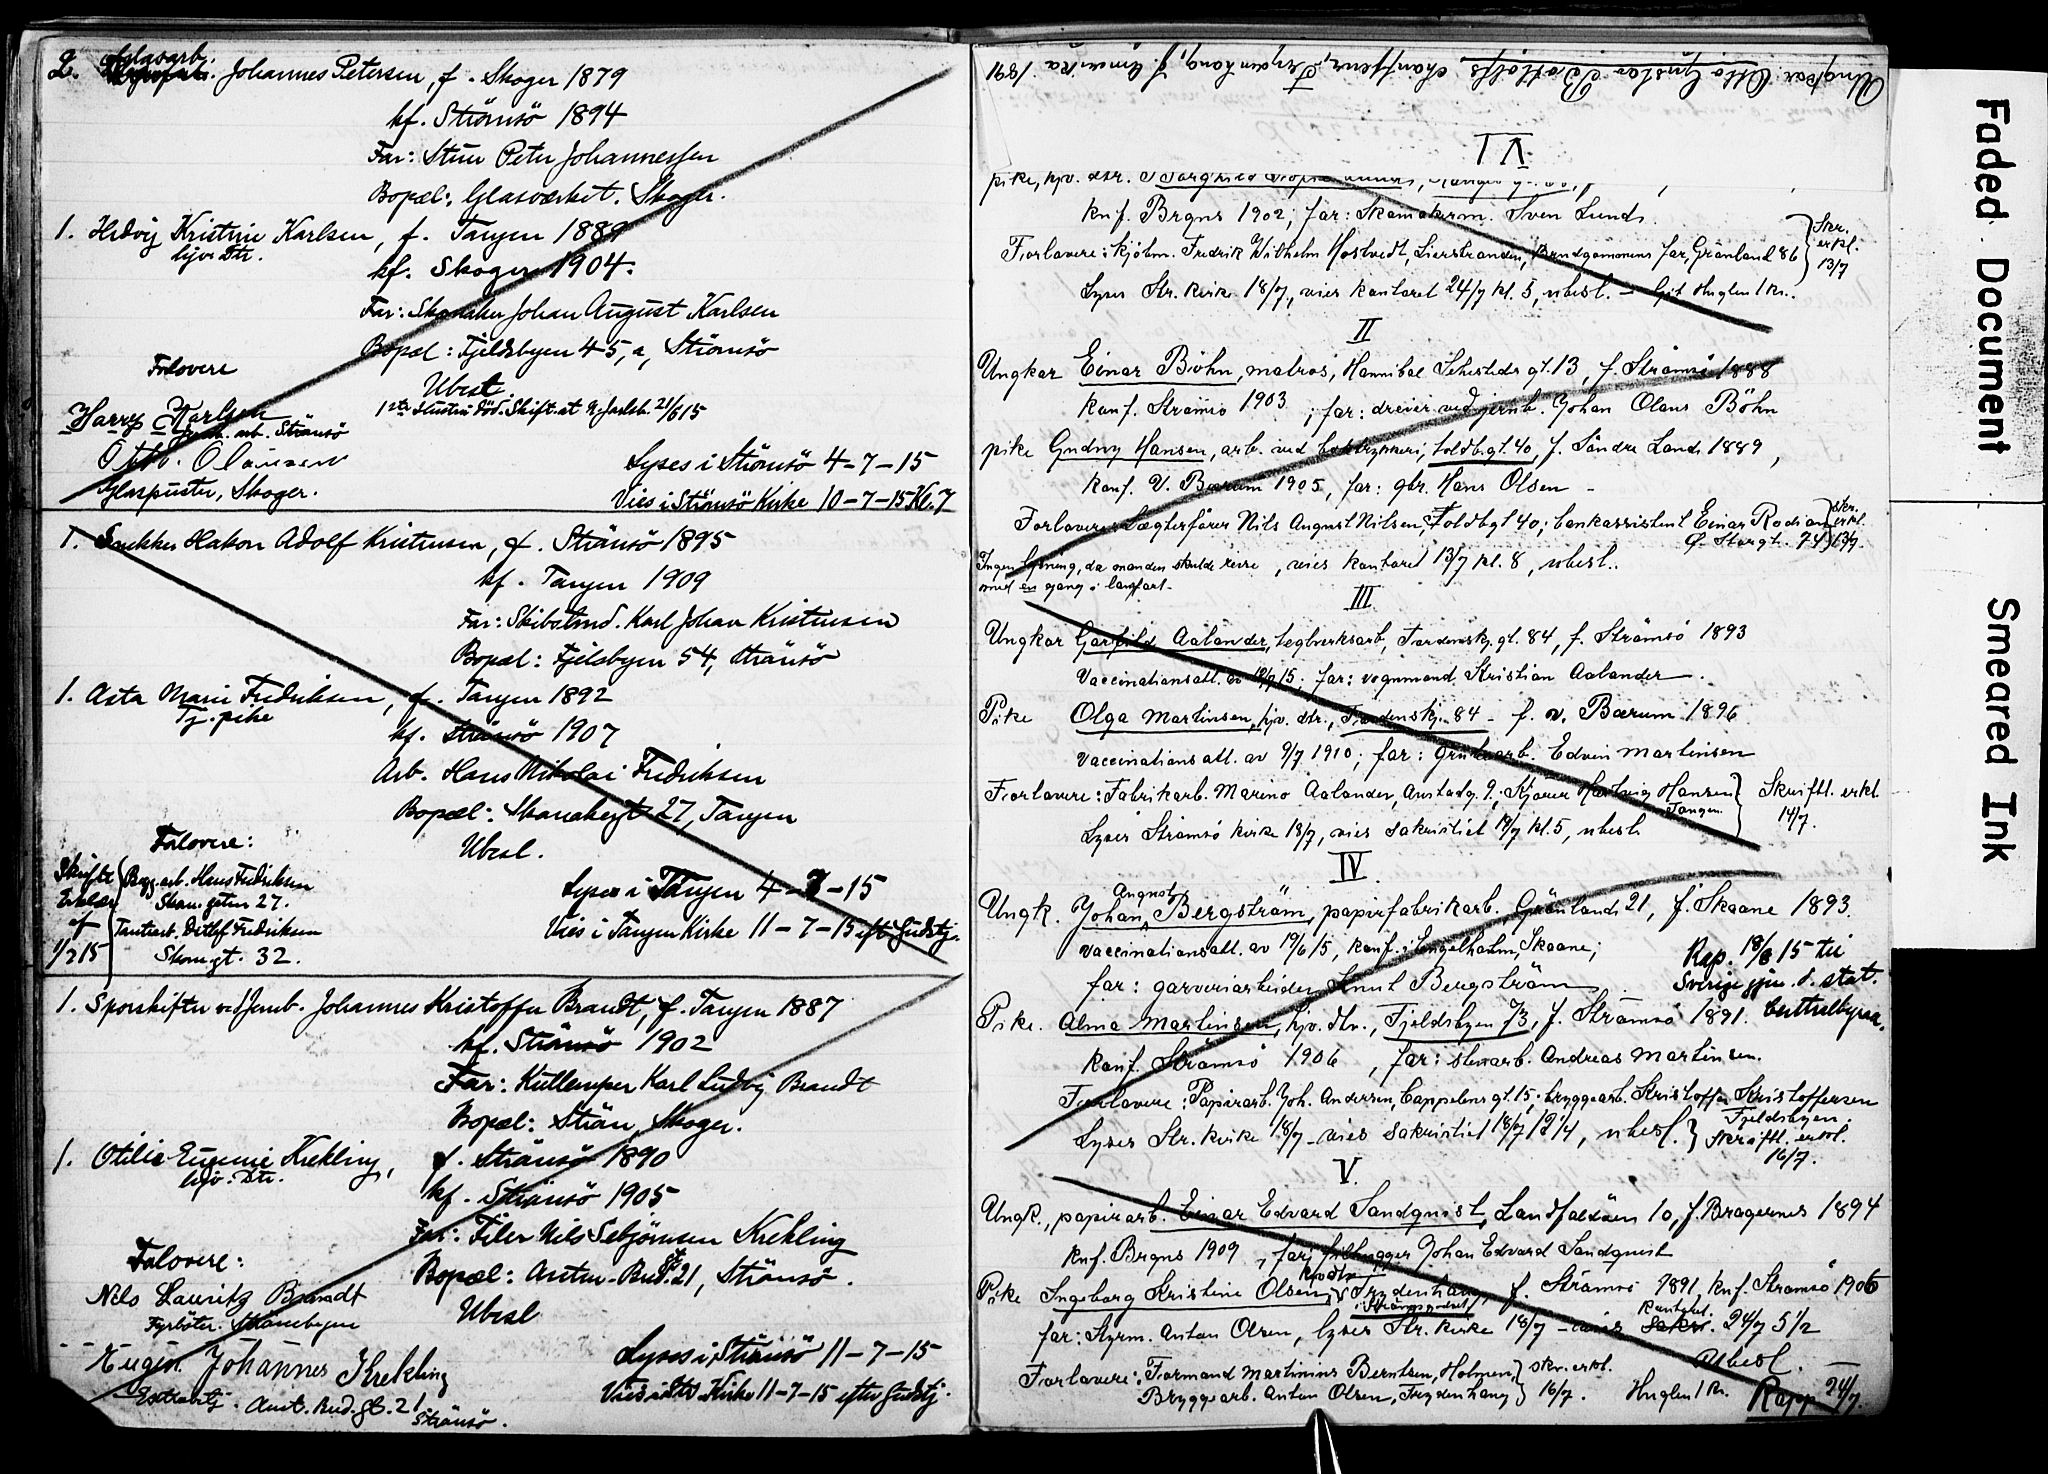 2. Glasarb. Johannes Petersen, f. Skoger 1879
kf. Strömsö 1894
Far: Stuer Peter Johannessen
Bopæl: Glasværket. Skoger.
1. Hedvig Kristine Karlsen, f. Tangen 1889
hjv. Dtr.
kf. Skoger 1904.
Far: Skomaker Johan August Karlsen
Bopæl: Fjeldsbyen 45, a, Strömsö
Ubesl.
Forlovere
1ste Hustru död. Skift. at N. Jarlsb. 21/6 15
Harry Karlsen
Jernb. arb. Strömsö
Otto. Olaussen
Glaspuster, Skoger.
Lyses i Strömsö 4-7-15
Vies i Strömsö Kirke 10-7-15 Kl. 7
1. Snekker Hakon Adolf Kristensen, f. Strömsö 1895
kf. Tangen 1909
Far: Skibstmd. Karl Johan Kristensen
Bopæl: Fjelsbyen 54, Strömsö
1. Asta Marie Fredriksen, f. Tangen 1892
Tj. pike
kf. Strömsö 1907
Arb. Hans Nikolai Fredriksen
Bopæl: Skomakergt 27, Tangen
Forlovere:
Ubesl.
Skriftl Brygg. arb. Hans Fredriksen
Erklær. Skom. gaten 27.
af Tomtearb. Ditlef Fredriksen
1/7 15 Skom. gt. 32.
Lyses i Tangen 4-7-15
Vies i Tangen Kirke 11-7-15 eft. Gudstj.
1. Sporskifter ved Jernb. Johannes Kristoffer Brandt, f. Tangen 1887
kf. Strömsö 1902
Far: Kullemper Karl Ludvig Brandt
Bopæl: Ström, Skoger.
1. Otilie Eugenie Krekling, f. Strömsö 1890
hjv. Dtr.
kf. Strömsö 1905
Far: Filer Nils Sebjörnsen Krekling
Forlovere:
Bopæl: Anton-Bud. gt 21, Strömsö.
Nils Lauritz Brandt
Fyrböter. Strömsbyen
Ubesl
Eugen Johannes Krekling
Extrabetj. Ant. Bud. gt. 21
Strömsö.
Lyses i Strömsö 11-7-15
Vies i Str. Kirke 11-7-15 efter Gudstj.
Ungkar: Otto Gustav Bottolfs chauffeur, Frydenhaug, f. Amerika 1891
I
pike, hjv. dtr.
knf. Brgns 1902; far: Skomakerm. Sven Lund.
Forlovere: kjöbm. Fredrik Wilhelm Mostvedt, Lierstranden, Brudgommens far, Grönland 86 } Skr. erkl. 13/7
Lyses Str. kirke 18/7, vies kontoret 24/7 kl. 5, ubesl. - Git Huglen 1 kr.
II
Ungkar Einar Böhn, matros, Hannibal Sehesteds gt. 13, f. Strömsö 1888
konf. Strömsö 1903; far: dreier ved jernb. Johan Olaus Böhn
pike Gudny Hansen, arb. ved boktrykkeri, Toldb. gt. 40, f. Söndre Land 1889,
konf. V. Bærum 1905, far: gbr. Hans Olsen -
Forlovere: Lægterfører Nils August Nilsen, Toldbgt 40; bankassistent Einar Rodian } skr. erkl. 13/7
Ø. Storgt. 74
Ingen lysning, da manden skulde reise, vies kontoret 13/7 kl. 8, ubesl.
med en gang i langfart.
III
Ungkar Garfild Aalander, teglverksarb, Tordenskj. gt. 84, f. Strömsö 1893
Vaccinationsatt. av 12/7 15, far: vognmand Kristian Aalander.
Pike Olga Martinsen, hjv. dtr., Tordenskj. 84 - f. v. Bærum 1896
Vaccinationsatt. av 9/7 1910; far: Grubearb. Edvin Martinsen
Forlovere: Fabrikarb. Marino Aalander, Austadg. 9; Kjörer Hartvig Hansen } Skriftl. erkl.
Tangen 14/7.
Lyses Strömsö kirke 18/7, vies Sakristiet 19/7 kl. 5, ubesl.
IV
August
Ungk. Johan Bergström, papirfabrikarb. Grönland 21, f. Skaane 1893.
Vaccinationsatt. av 19/6 15, konf. i Engelholm, Skaane;
Rap. 18/8 15 til
far: garveriarbeider Emil Bergström
Sverige gjen. d. stat.
Pike. Alma Martinsen, hjv. dtr., Fjeldsbyen 73, f. Strömsö 1891. Centralbyraa.
konf. Strömsö 1906, far: stenarb. Andreas Martinsen.
Forlovere: Papirarb. Joh. Andersen, Cappelens gt. 15; bryggearb. Kristoffer Kristoffersen
Fjeldsbyen.
Lyses Str. kirke 18/7 - vies Sakristiet 18/7 12 1/4, ubesl. } Skriftl. erkl.
16/7.
V
Ungk., papirarb. Einar Edvard Sandqvist, Landfaldöen 10, f. Bragernes 1894
knf. Brgns 1909, far: filhugger Johan Edvard Sandqvist
Pike Ingeborg Kristine Olsen, hjv. dtr. Frydenhaug, f. Strömsö 1891, knf. Strömsö 1906
i Strömsgodset
far: Styrm. Anton Olsen, lyses Str. kirke 18/7 - vies Sakri. kontoret. 24/7 5 1/2
Ubesl.
Forlovere: Formand Martinius Berntsen, Holmen, } skr. erkl.
Bryggearb. Anton Olsen, Frydenhaug } 16/7. Huglen 1 kr. Rapp 24/7.
Faded Document
Smeared Ink